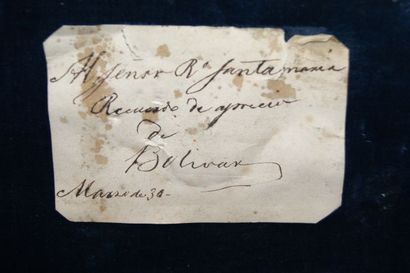 Al Señor Rn Santamaria
Recuerdo de aprecio
de
Bolivar
Marzo de 30-